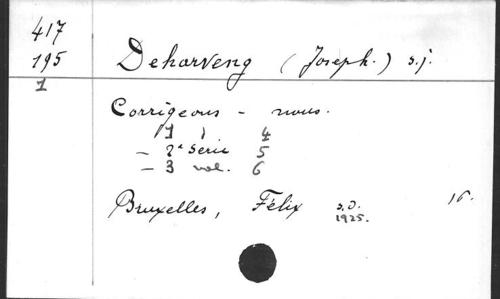 417
195
1
Deharveng (Joseph.) s.j.
Corrigeons - nous.
1 4
- 2e Série 5
- 3 vol. 6
Bruxelles, Félix s.d. 16.
1925.